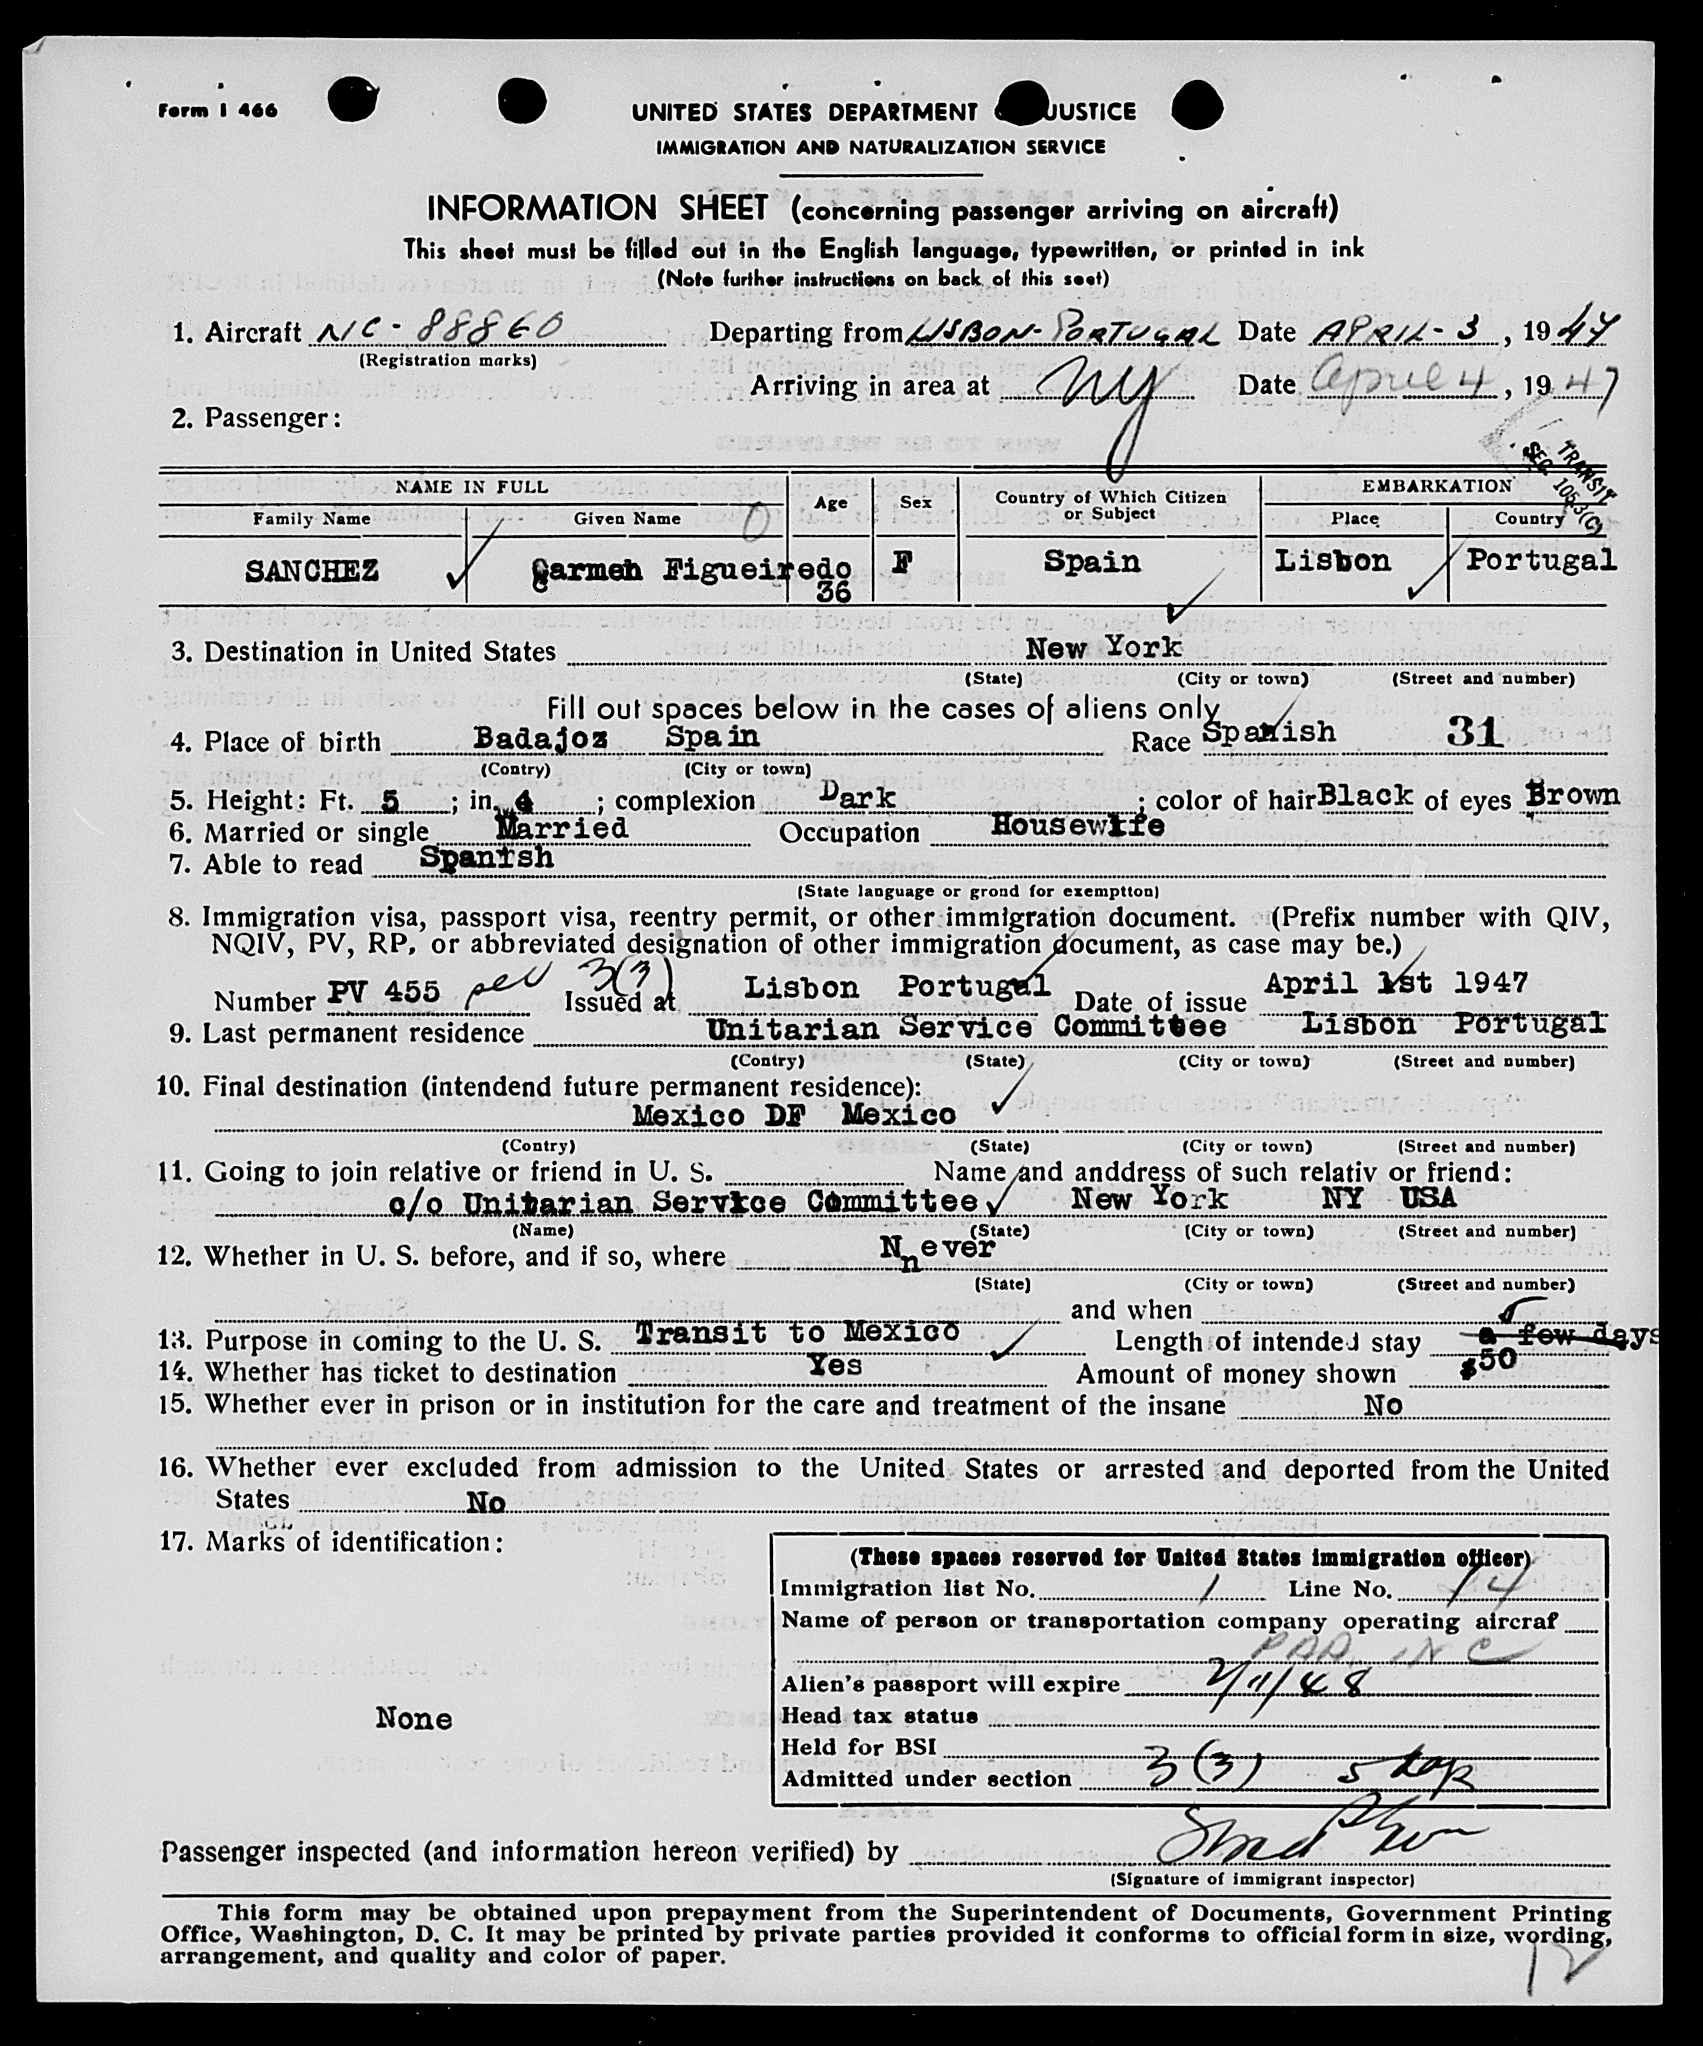 Form I 466
UNITED STATES DEPARTMENT JUSTICE
IMMIGRATION AND NATURALIZATION SERVICE
INFORMATION SHEET (concerning passenger arriving on aircraft)
This sheet must be filled out in the English language, typewritten, or printed in ink
(Note further instructions on back of this seet)
1. Aircraft NC-88860 Departing from LISBON-PORTUGAL Date APRIL-3, 1947
(Registration marks)
Arriving in area at NY Date April 4, 1947
2. Passenger:
TRANSIT
SEC 1053(C)
NAME IN FULL Age Sex Country of Which Citizen or Subject EMBARKATION
Family Name Given Name Place Country
0
SANCHEZ Carmen Figueiredo 36 F Spain Lisbon Portugal
3. Destination in United States New York
(State) (City or town) (Street and number)
Fill out spaces below in the cases of aliens only
4. Place of birth Badajoz Spain Race Spanish 31
(Contry) (City or town)
5. Height: Ft. 5; in. 4; complexion Dark; color of hair Black of eyes Brown
6. Married or single Married Occupation Housewife
7. Able to read Spanish
(State language or grond for exemptton)
8. Immigration visa, passport visa, reentry permit, or other immigration document. (Prefix number with QIV,
NQIV, PV, RP, or abbreviated designation of other immigration document, as case may be.)
Number PV 455 3(3) Issued at Lisbon Portugal Date of issue April 1st 1947
9. Last permanent residence Unitarian Service Committee Lisbon Portugal
(Contry) (State) (City or town) (Street and number)
10. Final destination (intendend future permanent residence):
Mexico DF Mexico
(Contry) (State) (City or town) (Street and number)
11. Going to join relative or friend in U. S. Name and anddress of such relativ or friend:
c/o Unitarian Service Committee New York NY USA
(Name) (State) (City or town) (Street and number)
12. Whether in U. S. before, and if so, where Nnever
(State) (City or town) (Street and number)
and when
13. Purpose in coming to the U. S. Transit to Mexico Length of intended stay a few days
14. Whether has ticket to destination Yes Amount of money shown $50
15. Whether ever in prison or in institution for the care and treatment of the insane No
16. Whether ever excluded from admission to the United States or arrested and deported from the United
States No
17. Marks of identification:
None
(These spaces reserved for United States immigration officer)
Immigration list No. 1 Line No. 14
Name of person or transportation company operating aircraf
PAA. INC
Alien's passport will expire 2/11/48
Head tax status
Held for BSI
Admitted under section 3(3) 5 days
Passenger inspected (and information hereon verified) by
(Signature of immigrant inspector)
This form may be obtained upon prepayment from the Superintendent of Documents, Government Printing
Office, Washington, D. C. It may be printed by private parties provided it conforms to official form in size, wording,
arrangement, and quality and color of paper.
12